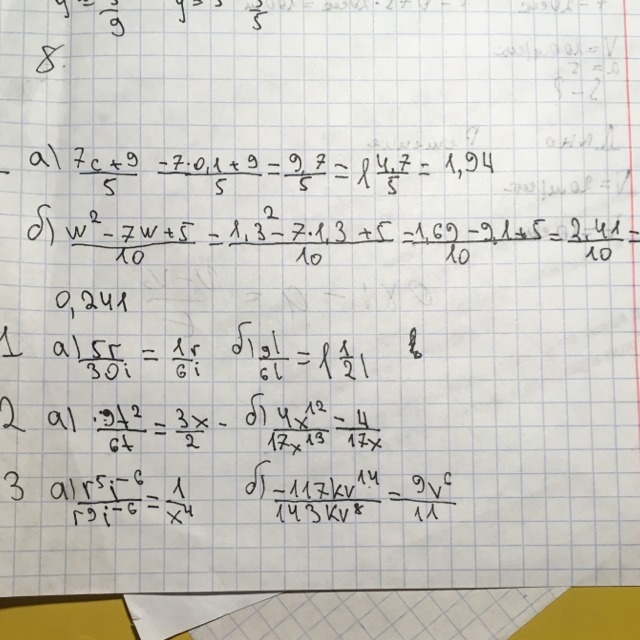 8.
а) 7c+9/5 -7·0,1+9/5 = 9,7/5 = 1 4,7/5 = 1,94
б) w²-7w+5/10 = 1,3²-7·1,3+5/10 = 1,69-9,1+5/10 = 2,41/10 =
0,241
1 а) 5r/30i = 1r/6i б) 9l/6l = 1 1/2l
2 а) 9t²/6t = 3x/2 - б) 4x¹²/17x¹³ - 4/17x
3 а) r⁵i⁻⁶/r⁹i⁻⁶ = 1/x⁴ б) -117kv¹⁴/143kv⁸ = 9v⁶/11